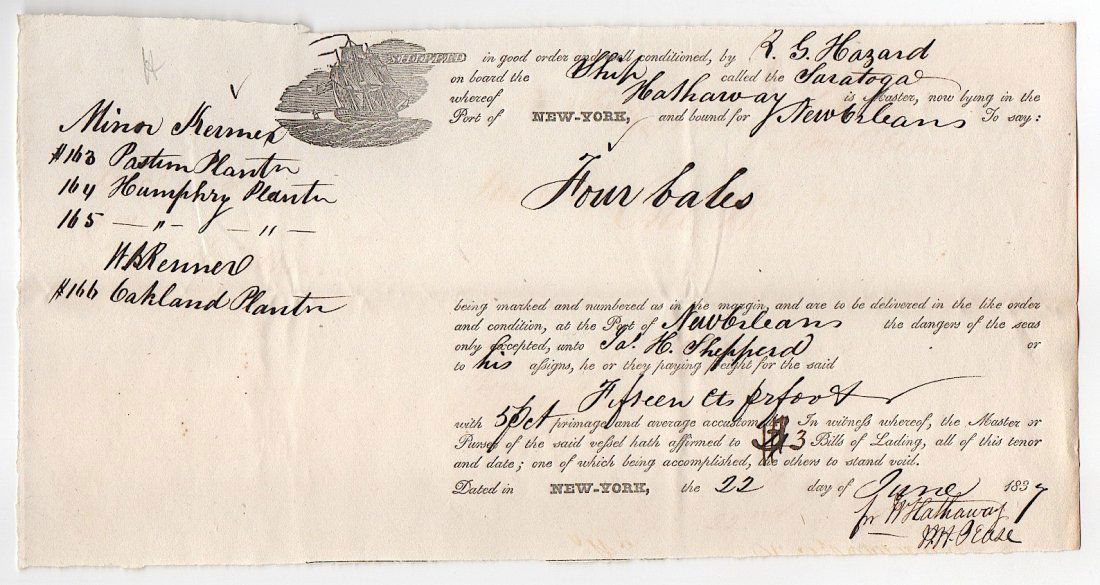 Minor Kenner
#163 Pastun Plantn
164 Humphry Plantn
165 — " — — " —
W B Kenner
#166 Oakland Plantn
SHIPPED in good order and well conditioned, by R. G. Hazard
on board the Ship called the Saratoga
whereof Hathaway is Master, now lying in the
Port of NEW-YORK, and bound for New Orleans To say:
Four bales
being marked and numbered as in the margin, and are to be delivered in the like order
and condition, at the Port of New Orleans the dangers of the seas
only excepted, unto Jas. H. Shepperd or
to his assigns, he or they paying freight for the said
Fifteen cts pr foot
with 5 pCt primage and average accustomed. In witness whereof, the Master or
Purser of the said vessel hath affirmed to 3 Bills of Lading, all of this tenor
and date; one of which being accomplished, the others to stand void.
Dated in NEW-YORK, the 22 day of June 1837
for W Hathaway
Pease